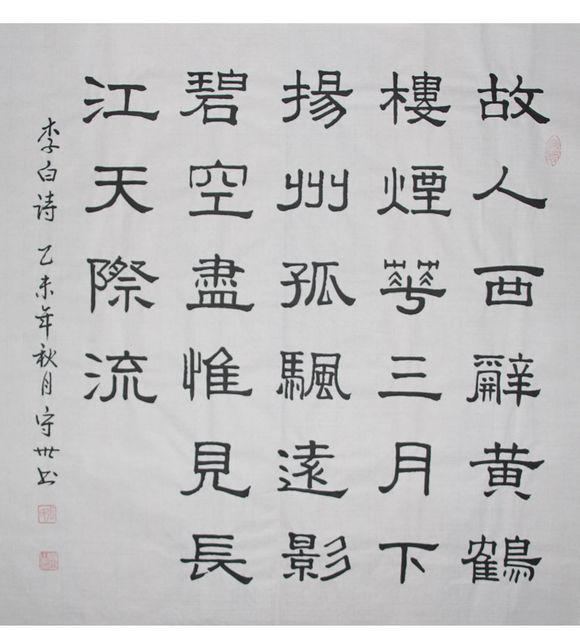 故人西辭黄鶴
樓煙蕐三月下
揚州孤颿遠影
碧空盡惟見長
江天際流
李白诗 乙未年秋月守卅书